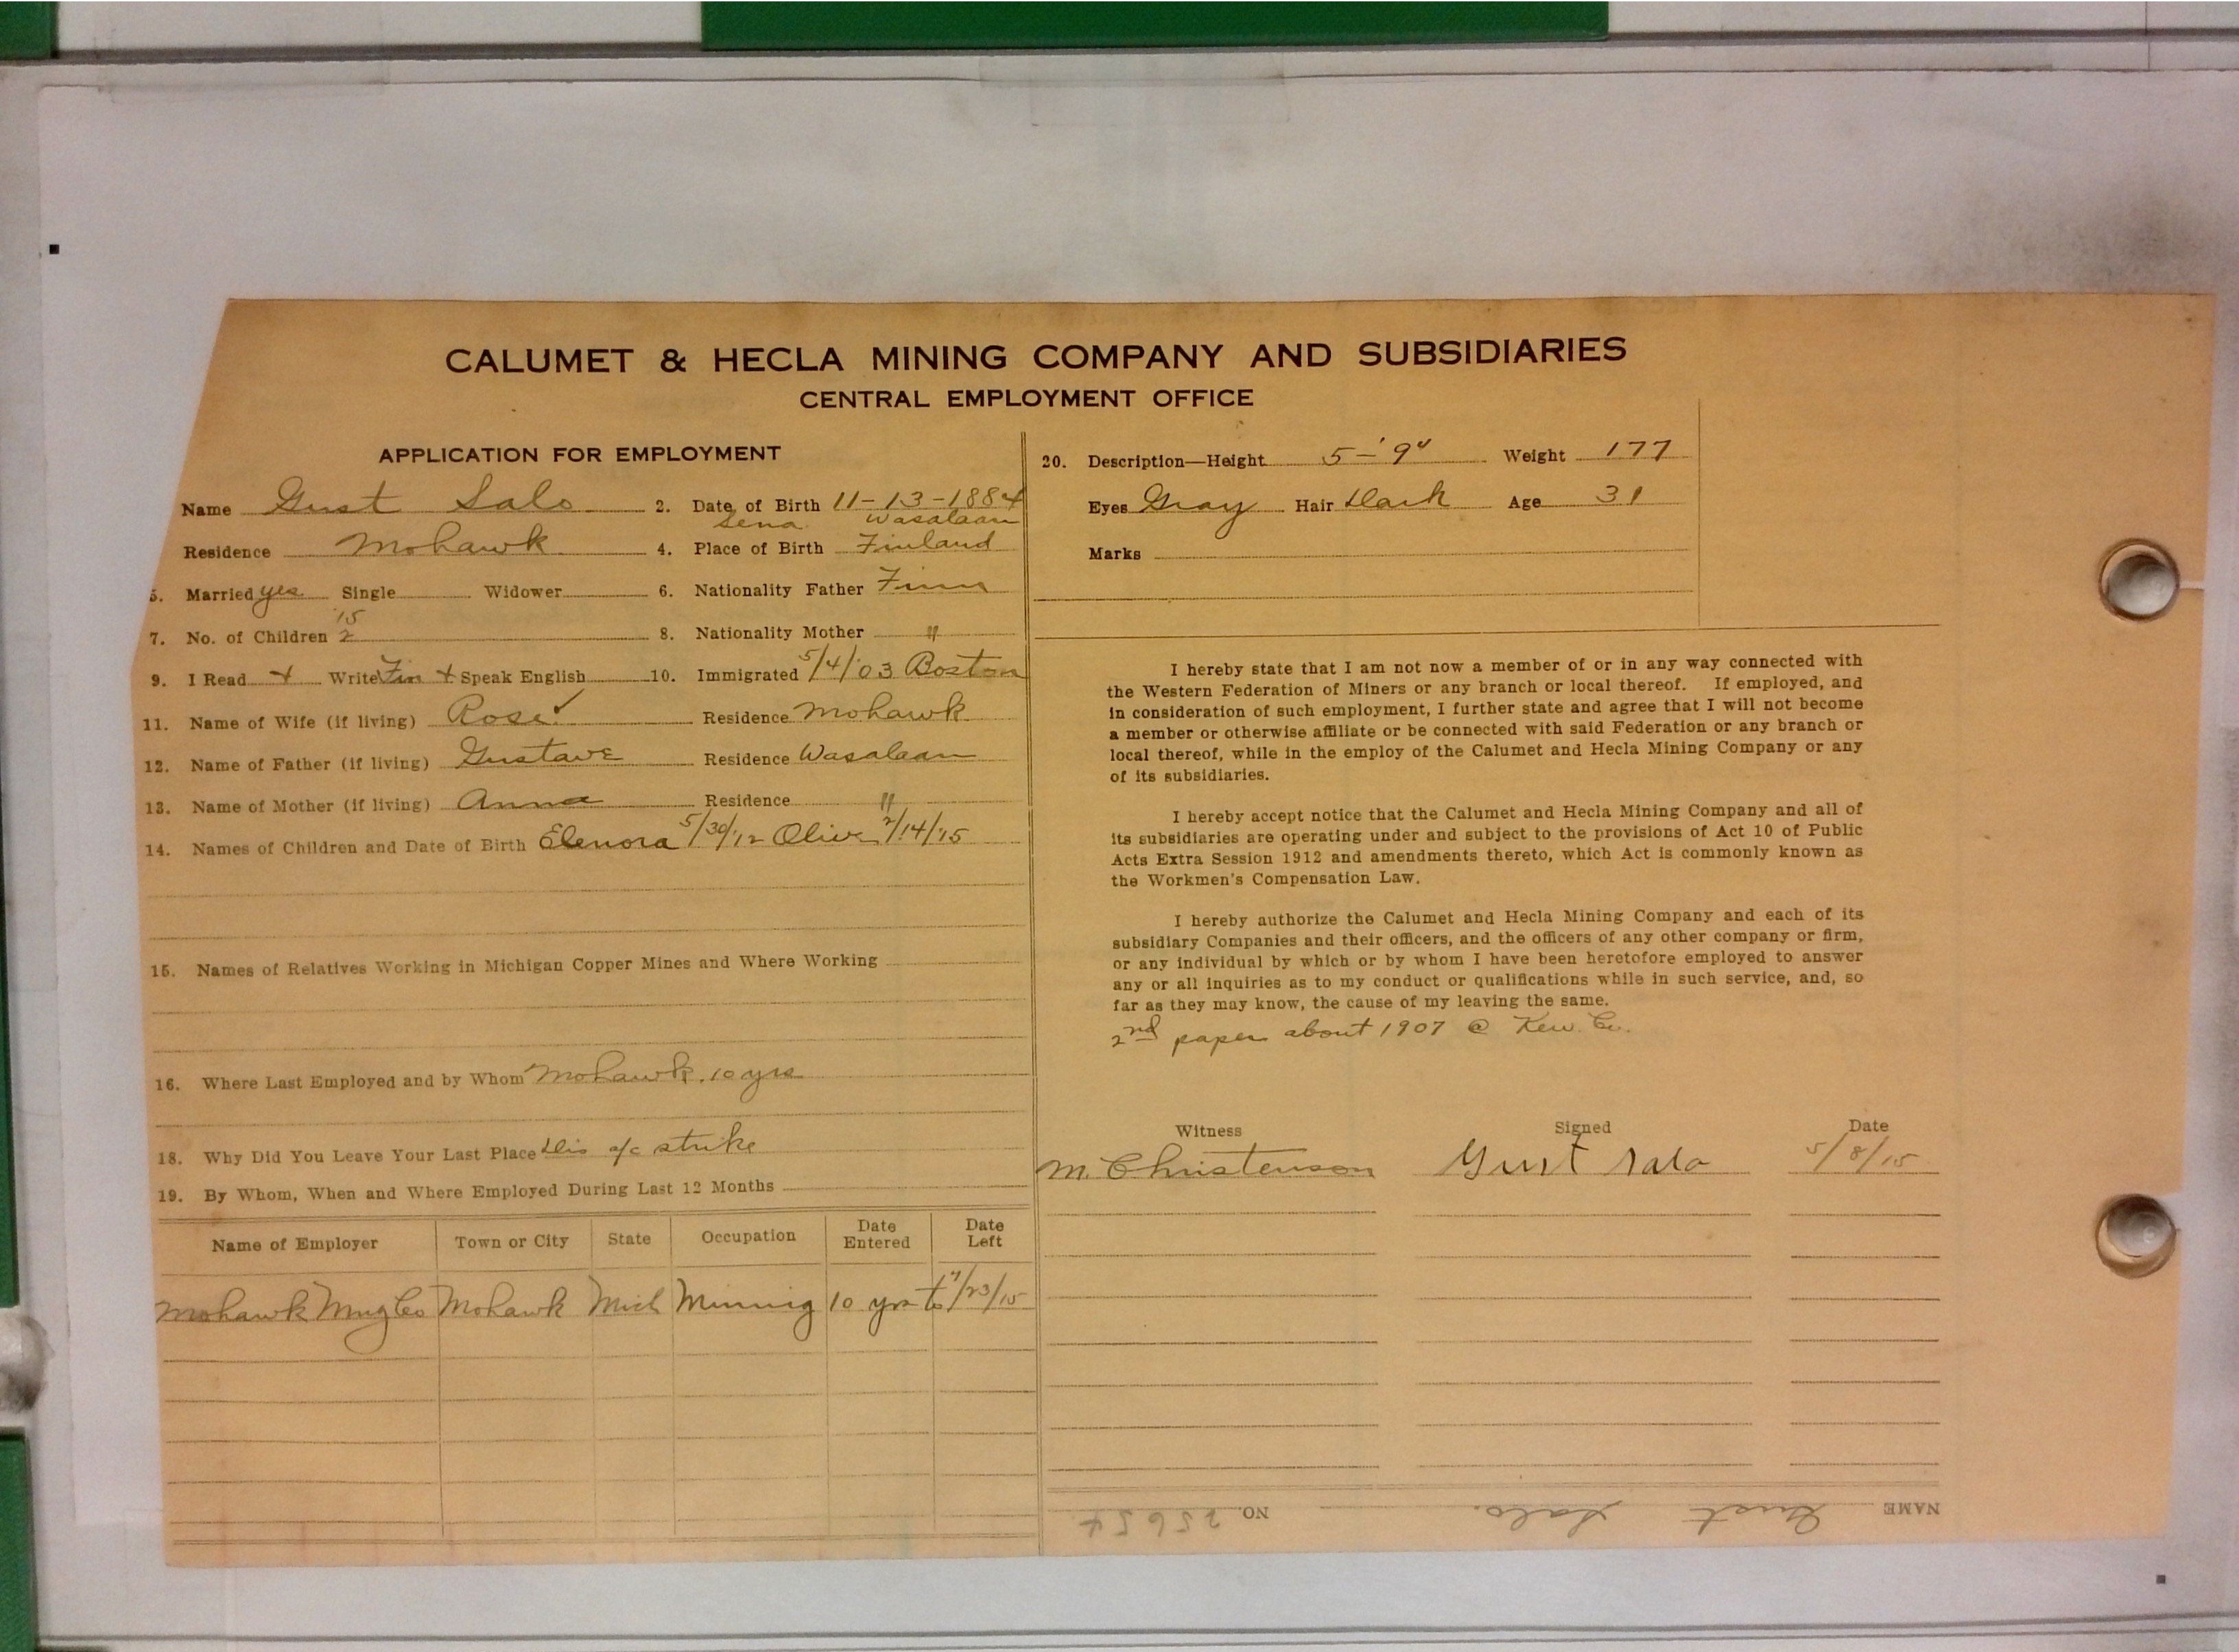 CALUMET & HECLA MINING COMPANY AND SUBSIDIARIES
CENTRAL EMPLOYMENT OFFICE
APPLICATION FOR EMPLOYMENT
Name Gust Salo 2. Date of Birth 11-13-1884
Wasalaan
Residence Mohawk 4. Place of Birth Finland
5. Married yes Single Widower 6. Nationality Father Finn
'15
7. No. of Children 2 8. Nationality Mother "
9. I Read + Write Fin + Speak English 10. Immigrated 5/4/03 Boston
11. Name of Wife (if living) Rose ✓ Residence Mohawk
12. Name of Father (if living) Gustave Residence Wasalaan
13. Name of Mother (if living) Anna Residence "
14. Names of Children and Date of Birth Elenora 5/30/12 Olive 2/14/15
15. Names of Relatives Working in Michigan Copper Mines and Where Working
16. Where Last Employed and by Whom Mohawk. 10 yrs
18. Why Did You Leave Your Last Place Dis a/c strike
19. By Whom, When and Where Employed During Last 12 Months
Name of Employer Town or City State Occupation Date Entered Date Left
Mohawk Mng Co Mohawk Mich Minnig 10 yrs to /23/15
20. Description—Height 5-'9" Weight 177
Eyes Gray Hair Dark Age 31
Marks
I hereby state that I am not now a member of or in any way connected with
the Western Federation of Miners or any branch or local thereof. If employed, and
in consideration of such employment, I further state and agree that I will not become
a member or otherwise affiliate or be connected with said Federation or any branch or
local thereof, while in the employ of the Calumet and Hecla Mining Company or any
of its subsidiaries.
I hereby accept notice that the Calumet and Hecla Mining Company and all of
its subsidiaries are operating under and subject to the provisions of Act 10 of Public
Acts Extra Session 1912 and amendments thereto, which Act is commonly known as
the Workmen's Compensation Law.
I hereby authorize the Calumet and Hecla Mining Company and each of its
subsidiary Companies and their officers, and the officers of any other company or firm,
or any individual by which or by whom I have been heretofore employed to answer
any or all inquiries as to my conduct or qualifications while in such service, and, so
far as they may know, the cause of my leaving the same.
2nd paper about 1907 @ Kew. Co.
Witness Signed Date
M. Christenson Gust Salo 5/8/15
NAME Gust Salo. NO. 25654